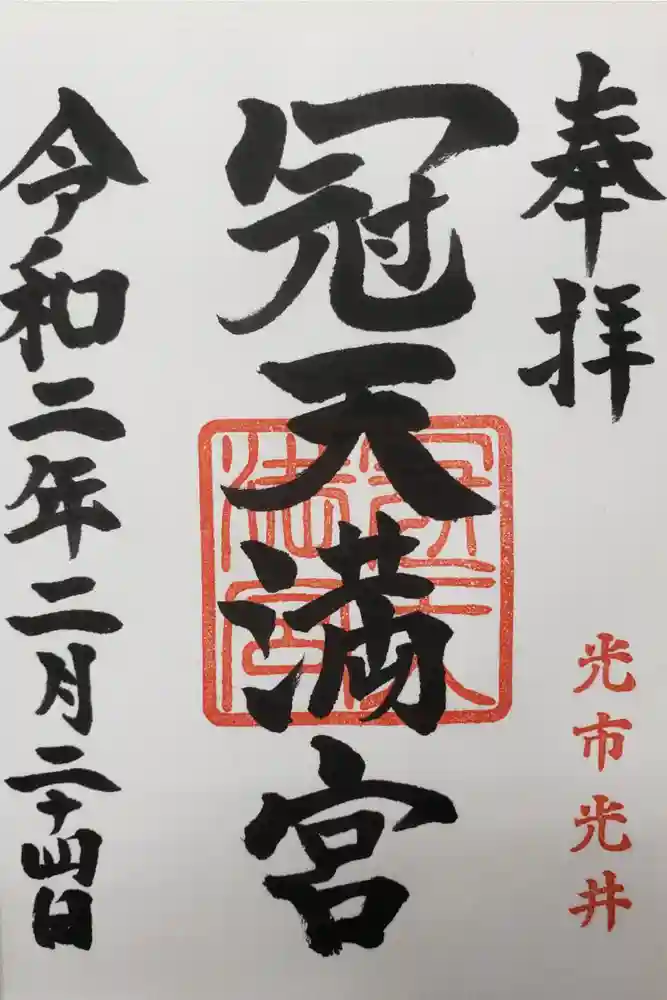 奉拝
光市光井
冠天満宮
令和二年二月二十四日